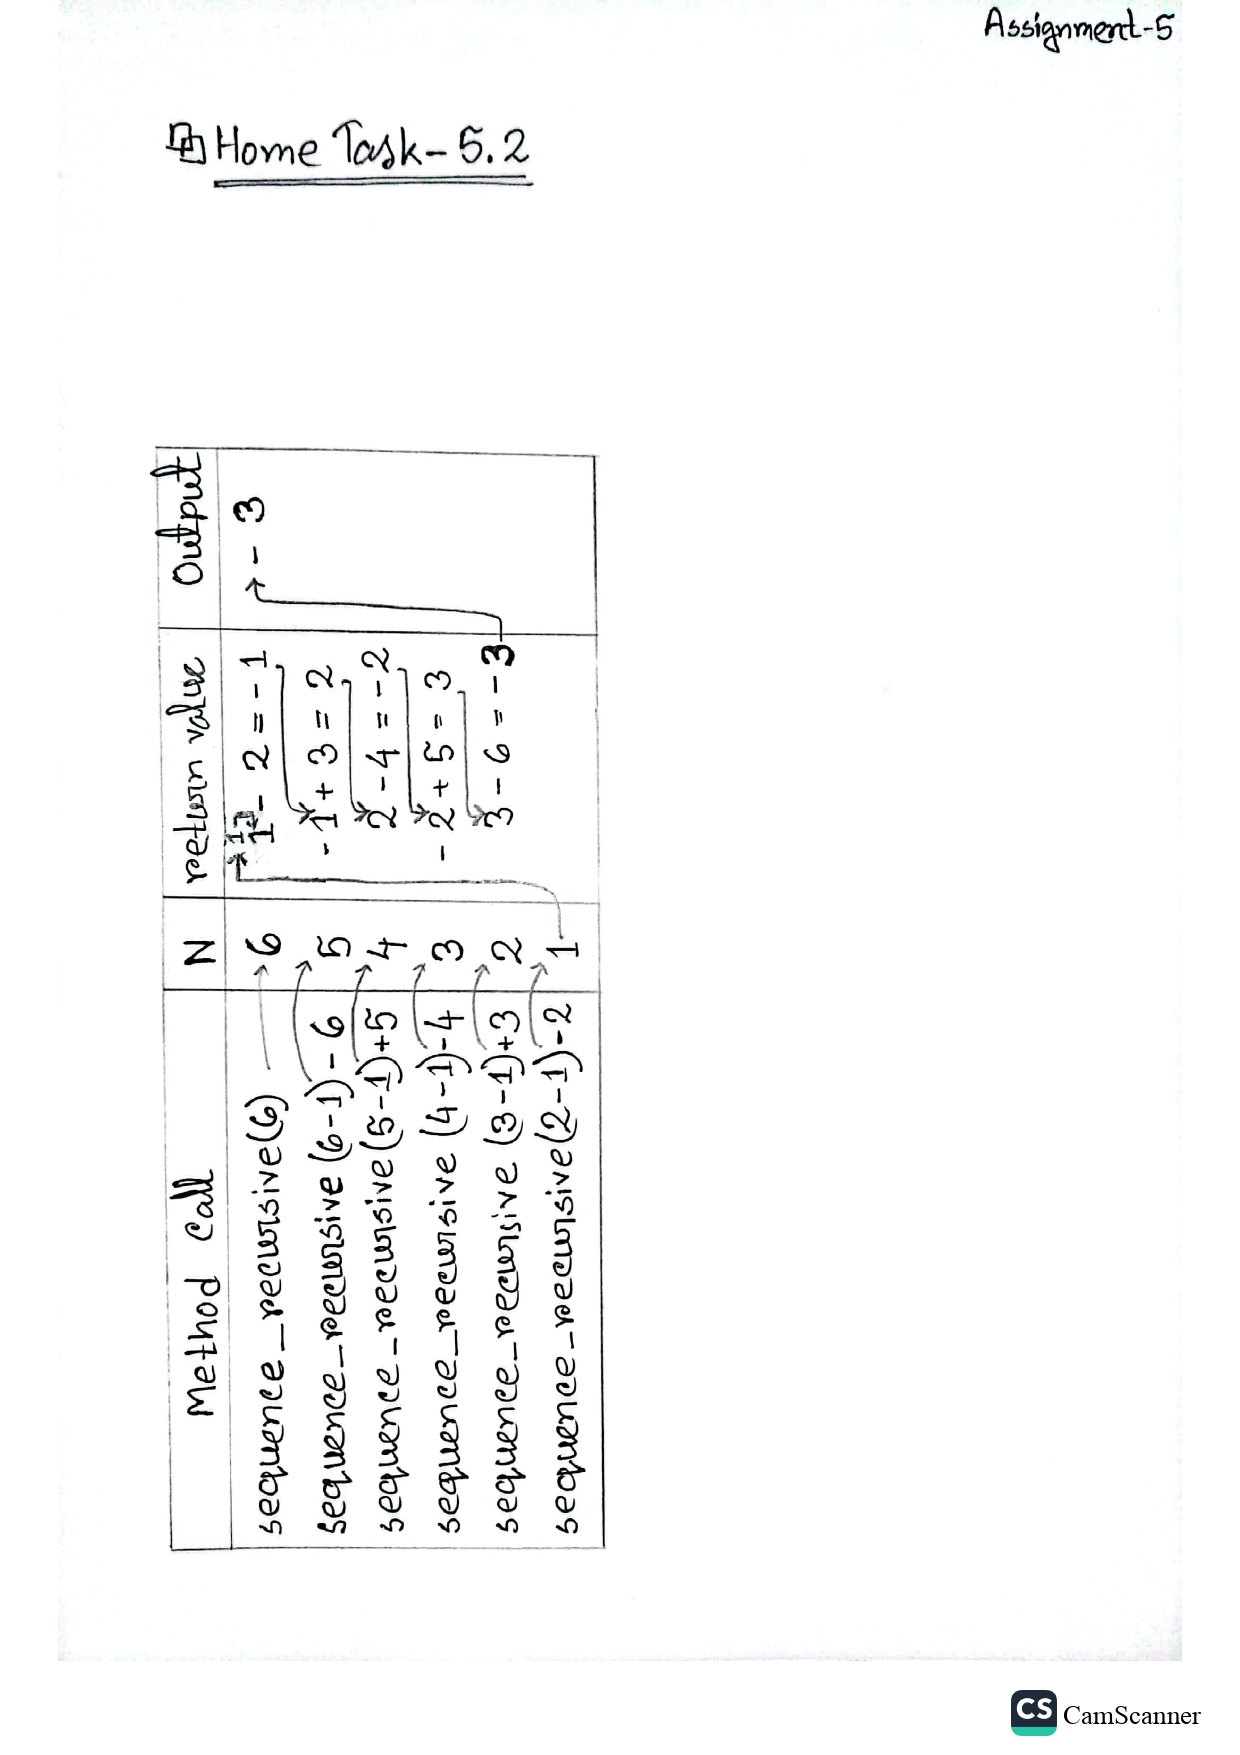 Assignment-5
Home Task-5.2
Method Call N return value Output
sequence_recursive(6) 6 1-2=-1 -3
sequence_recursive(6-1)-6 5 -1+3=2
sequence_recursive(5-1)+5 4 2-4=-2
sequence_recursive(4-1)-4 3 -2+5=3
sequence_recursive(3-1)+3 2 3-6=-3
sequence_recursive(2-1)-2 1
CS CamScanner